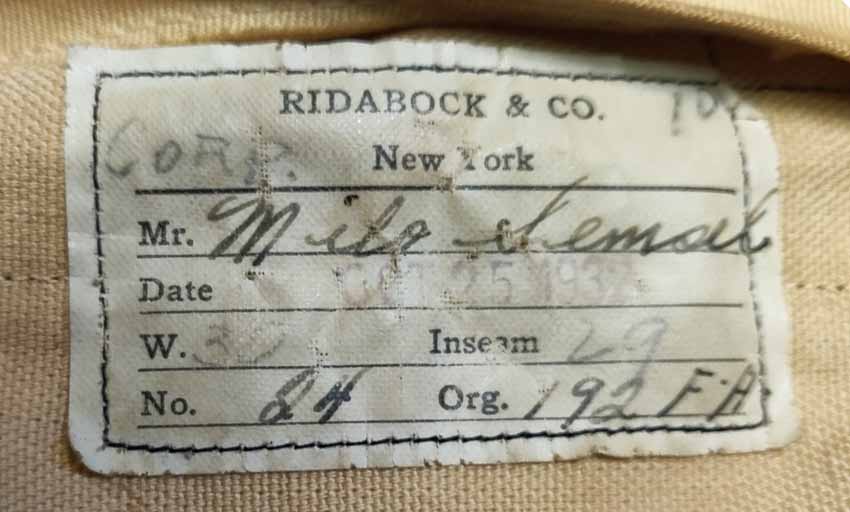 RIDABOCK & CO.
CORP. New York
Mr. Milo
Date OCT 25 1932
W. Inseam 29
No. 24 Org. 192 F.A.